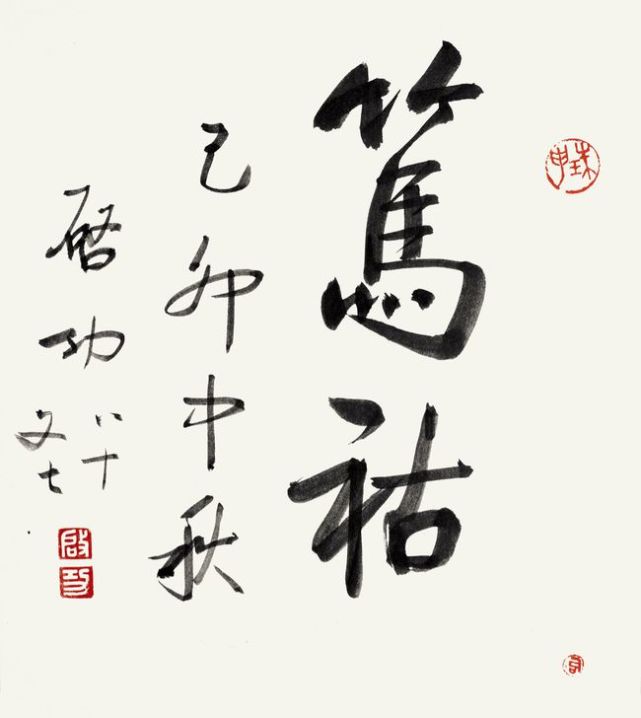 珠申
篤祜
己卯中秋
啓功
八十
又七
啓功